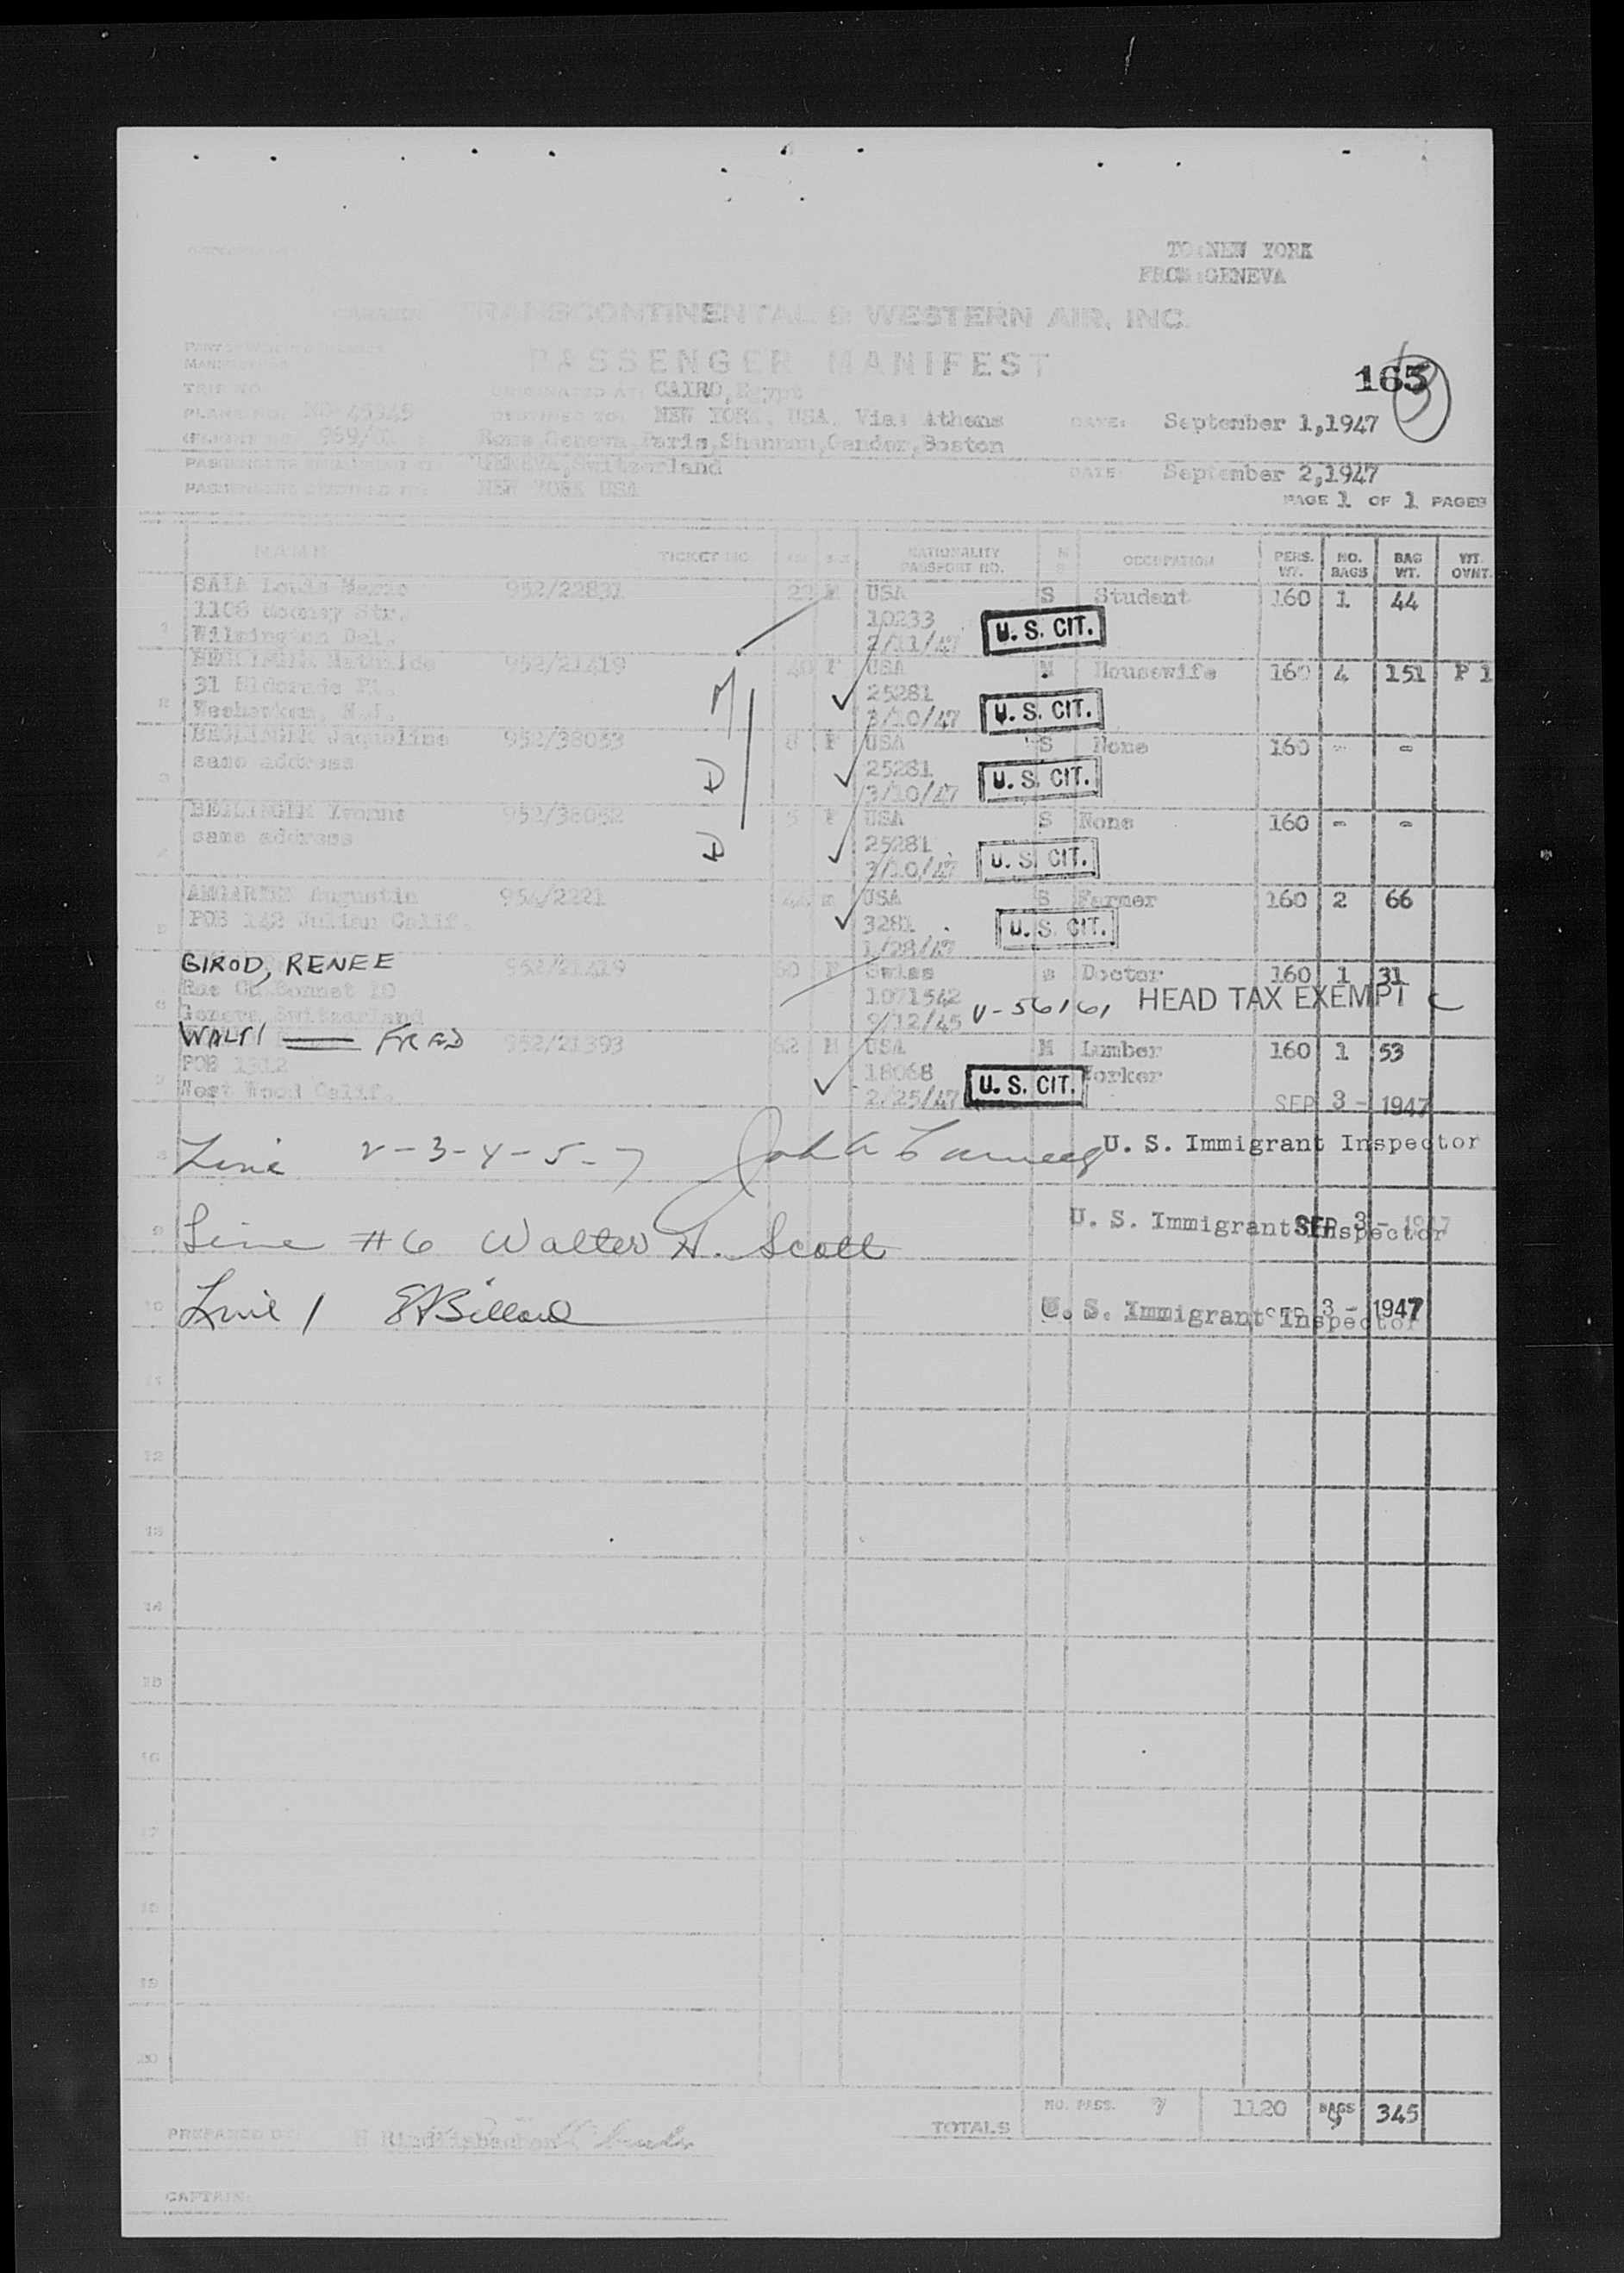 TO:NEW YORK
FROM:GENEVA
TRANSCONTINENTAL & WESTERN AIR, INC.
PASSENGER MANIFEST
165
3
TRIP NO.
ORIGINATED AT: CAIRO, Egypt
PLANE NO. NC 45345
DESTINED TO: NEW YORK, USA, Via: Athens
DATE: September 1,1947
969/01
Rome,Geneva,Paris,Shannon,Gander,Boston
GENEVA,Switzerland
DATE: September 2,1947
PASSENGERS DESTINED TO: NEW YORK USA
PAGE 1 OF 1 PAGES
NAME TICKET NO. SEX NATIONALITY PASSPORT NO. M S OCCUPATION PERS. WT. NO. BAGS BAG WT. WT. OVNT.
SAIA Louis 952/22831 22 M USA S Student 160 1 44
1106 Str. 10233 U. S. CIT.
Wilmington Del. 2/11/47
Mathilde 952/21419 40 F USA M Housewife 160 4 151 P 1
31 Eldorado Pl. 25281 U. S. CIT.
Weehawken, N.J. 3/10/47
Jaqueline 952/38053 8 F USA S None 160 - -
same address 25281 U. S. CIT.
3/10/47
Yvonne 952/38052 5 F USA S None 160 - -
same address 25281 U. S. CIT.
3/10/47
Augustin 954/2221 USA S Farmer 160 2 66
POB 142 Julian Calif. 3281 U. S. CIT.
1/28/47
GIROD, RENEE 952/21219 60 F Swiss S Doctor 160 1 31
Rue Ch Bonnet 10 1071542
Geneva Switzerland 9/12/45 V-56161 HEAD TAX EXEMPT C
WALTI FRED 952/21393 62 M USA M Lumber 160 1 53
POB 1312 18068 Worker
West Wood Calif. 2/25/47 U. S. CIT. SEP 3 - 1947
Line 2-3-4-5-7 U. S. Immigrant Inspector
Line #6 Walter H. Scott U. S. Immigrant Inspector SEP 3 - 1947
Line 1 U. S. Immigrant Inspector SEP 3 - 1947
11
12
13
14
15
16
17
18
19
20
TOTALS NO. PASS. 7 1120 BAGS 9 345
PREPARED BY:
CAPTAIN: